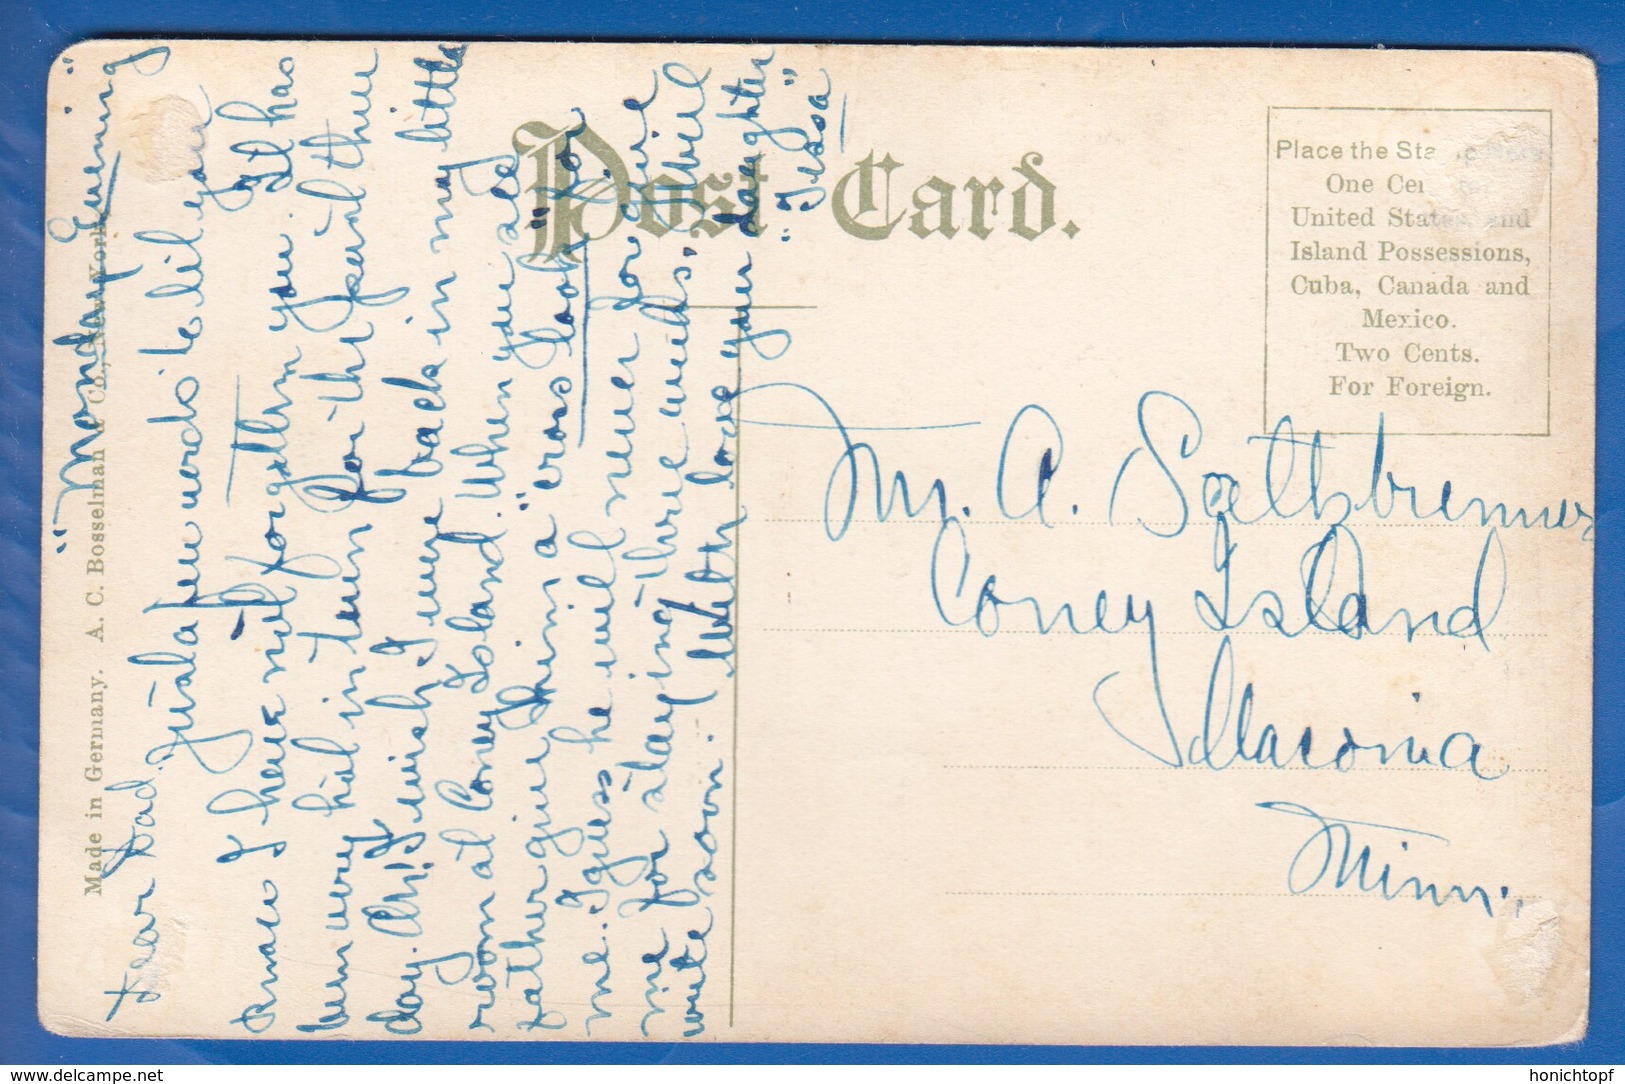 "Monday Evening"
Dear Dad, Just a few words to let you
know I have not forgotten you. It has
been very hot in town for the past three
day. Oh! I wish I were back in my little
room at Coney Island. When you see
father give him a "cross look" for
me. I guess he will never forgive
me for staying three weeks. Will
write soon. With love your daughter
"Tessa"
Made in Germany. A. C. Bosselman & Co., New York
Post Card.
Place the Stamp Here
One Cent for
United States and
Island Possessions,
Cuba, Canada and
Mexico.
Two Cents.
For Foreign.
Mr. A.
Coney Island
Waconia
Minn.
delcampe.net
honichtopf